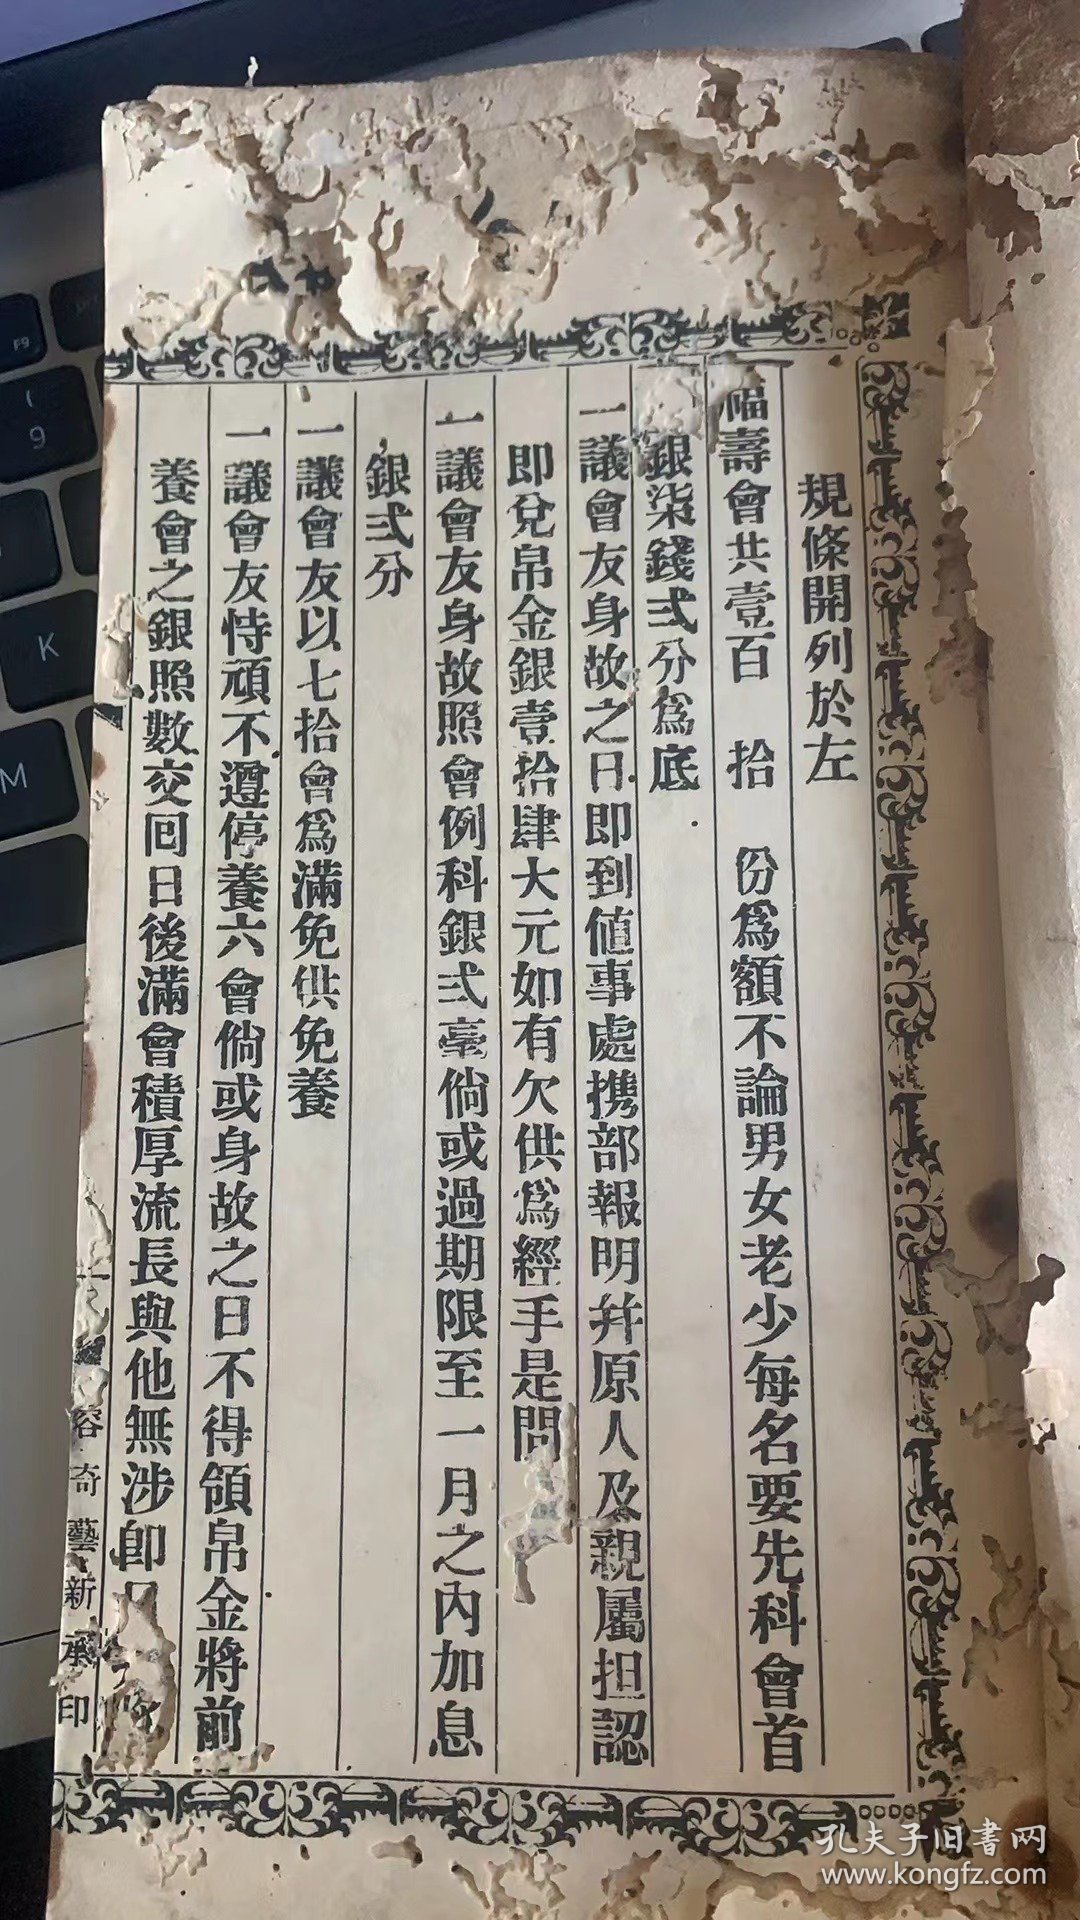 規條開列於左
福壽會共壹百 拾 份爲額不論男女老少每名要先科會首
銀柒錢弍分爲底
一議會友身故之日即到值事處携部報明并原人及親屬担認
即兌帛金銀壹拾肆大元如有欠供爲經手是問
一議會友身故照會例科銀弍毫倘或過期限至一月之內加息
銀弍分
一議會友以七拾會爲滿免供免養
一議會友恃頑不遵停養六會倘或身故之日不得領帛金將前
養會之銀照數交囘日後滿會積厚流長與他無涉即
容奇藝新承印
F9
(
9
K
M
孔夫子旧書网
www.kongfz.com